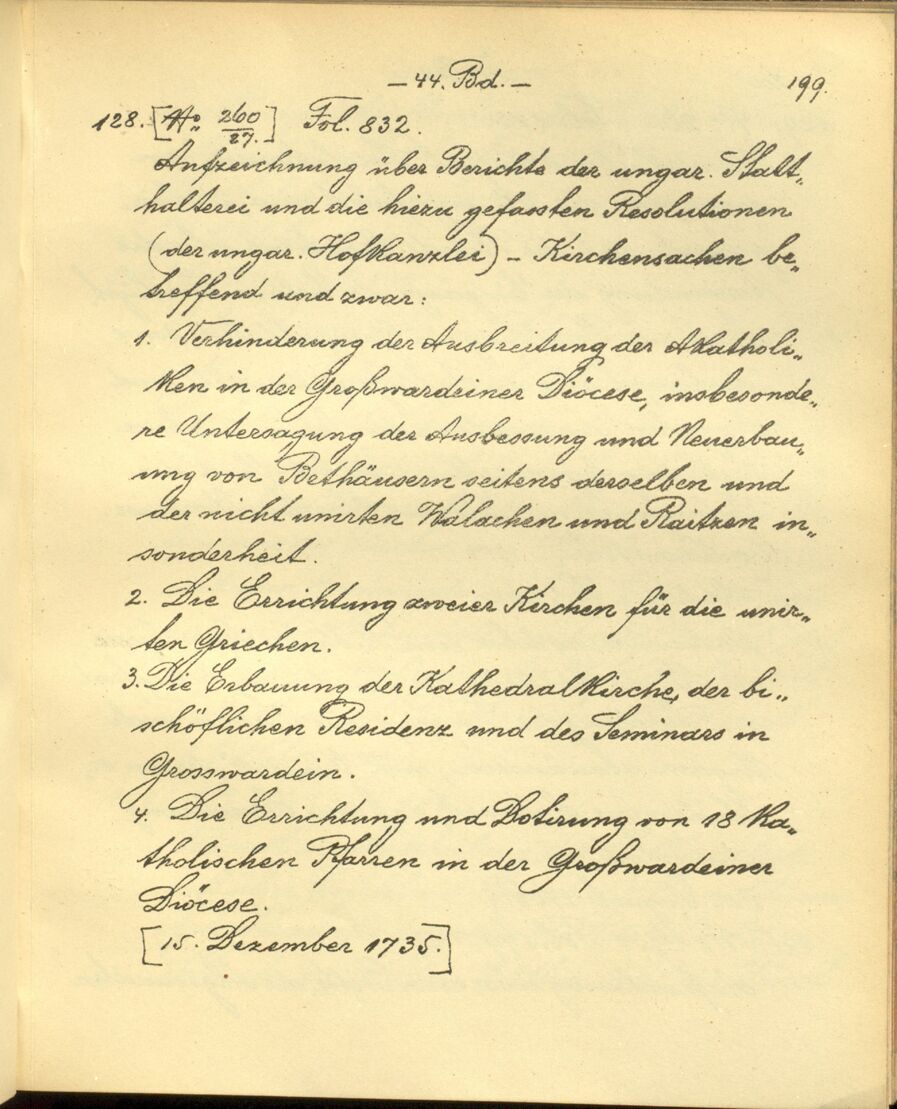 – 44. Bd. – 199.
128. [No 260/27.] Fol. 832.
Aufzeichnung über Berichte der ungar. Statt„
halterei und die hiezu gefassten Resolutionen
(der ungar. Hofkanzlei) – Kirchensachen be„
treffend und zwar:
1. Verhinderung der Ausbreitung der Akatholi„
ken in der Großwardeiner Diöcese, insbesonde„
re Untersagung der Ausbessung und Neuerbau„
ung von Bethäusern seitens derselben und
der nicht unirten Walachen und Raitzen in„
sonderheit.
2. Die Errichtung zweier Kirchen für die unir„
ten Griechen.
3. Die Erbauung der Kathedralkirche, der bi„
schöflichen Residenz und des Seminars in
Grosswardein.
4. Die Errichtung und Dotirung von 18 ka„
tholischen Pfarren in der Großwardeiner
Diöcese.
[15. Dezember 1735.]